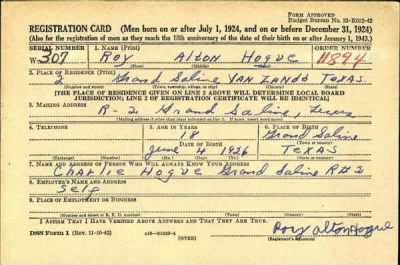 FORM APPROVED
Budget Bureau No. 33-R012-42
REGISTRATION CARD—(Men born on or after July 1, 1924, and on or before December 31, 1924)
(Also for the registration of men as they reach the 18th anniversary of the date of their birth on or after January 1, 1943.)
SERIAL NUMBER 1. NAME (Print) ORDER NUMBER
W 307 Roy Alton Hogue 11894
(First) (Middle) (Last)
2. PLACE OF RESIDENCE (Print)
2 Grand Saline VAN ZANDT TEXAS
(Number and street) (Town, township, village, or city) (County) (State)
[THE PLACE OF RESIDENCE GIVEN ON LINE 2 ABOVE WILL DETERMINE LOCAL BOARD
JURISDICTION; LINE 2 OF REGISTRATION CERTIFICATE WILL BE IDENTICAL]
3. MAILING ADDRESS
R-2 Grand Saline, Texas
[Mailing address if other than place indicated on line 2. If same, insert word same]
4. TELEPHONE 5. AGE IN YEARS 6. PLACE OF BIRTH
18 Grand Saline
DATE OF BIRTH (Town or county)
June 4 1926 Texas
(Exchange) (Number) (Mo.) (Day) (Yr.) (State or country)
7. NAME AND ADDRESS OF PERSON WHO WILL ALWAYS KNOW YOUR ADDRESS
Charlie Hogue Grand Saline R#2
8. EMPLOYER'S NAME AND ADDRESS
Self
9. PLACE OF EMPLOYMENT OR BUSINESS
(Number and street or R. F. D. number) (Town) (County) (State)
I AFFIRM THAT I HAVE VERIFIED ABOVE ANSWERS AND THAT THEY ARE TRUE.
DSS Form 1 (Rev. 11-16-42) (OVER) Roy Alton Hogue
(Registrant's signature)